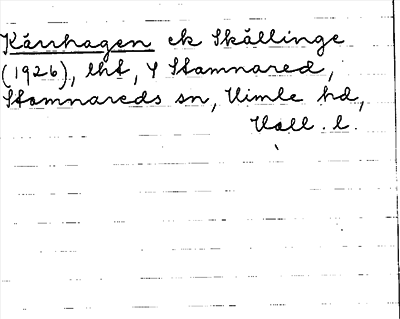 Kärrhagen ek Skällinge
(1926), lht, Y Stamnared,
Stamnareds sn, Himle hd,
Hall. l.